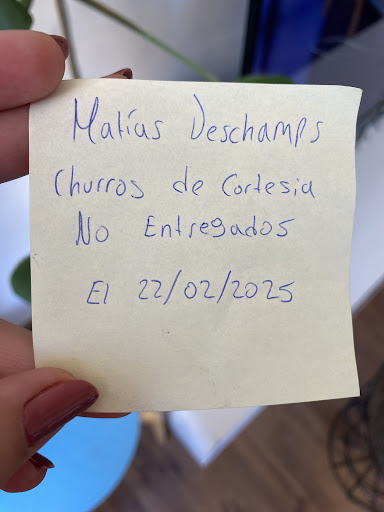 Matías Deschamps
Churros de Cortesia
No Entregados
El 22/02/2025